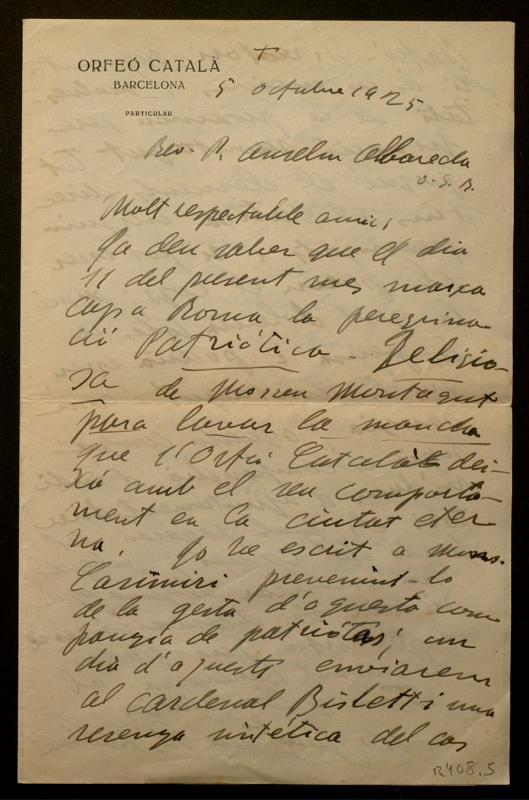 ORFEÓ CATALÀ
BARCELONA
PARTICULAR
+
5 octubre 1925
Rev. P. Anselm Albareda
O. S. B.
Molt respectable amic,
Ja deu saber que el dia
11 del present mes marxa
cap a Roma la peregrina
ció Patriótica - Religio-
sa de Mossen Montagut
para lavar la mancha
que l'Orfeó Català dei-
xá amb el seu comporta-
ment en la ciutat eter
na. Jo he escrit a Mons.
Casimiri prevenint-lo
de la gesta d'aquesta com
panyia de patriotas; un
dia d'aquests enviarem
al cardenal Bisletti una
resenya sintética del cas
R408.5